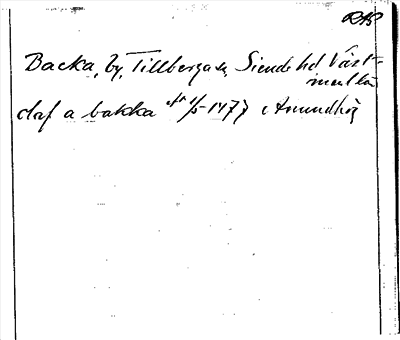 RAP
Backa, by, Tillberga sn, Siende hd Väst-
manland
olaf a bakka 1/5 1477 i Anundhög